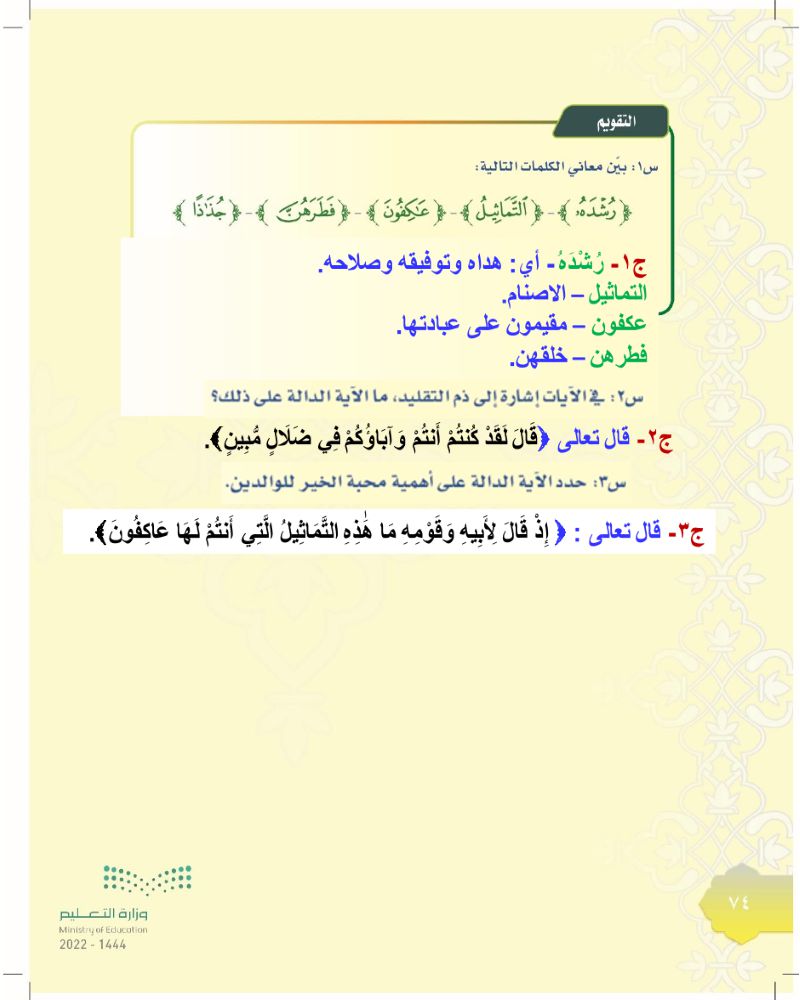 التقويم
س١: بيّن معاني الكلمات التالية:
﴿رُشْدَهُۥ﴾ - ﴿ٱلتَّمَاثِيلُ﴾ - ﴿عَٰكِفُونَ﴾ - ﴿فَطَرَهُنَّ﴾ - ﴿جُذَٰذًا﴾
ج١- رُشْدَهُ - أي: هداه وتوفيقه وصلاحه.
التماثيل – الاصنام.
عكفون – مقيمون على عبادتها.
فطرهن – خلقهن.
س٢: في الآيات إشارة إلى ذم التقليد، ما الآية الدالة على ذلك؟
ج٢- قال تعالى ﴿قَالَ لَقَدْ كُنتُمْ أَنتُمْ وَآبَاؤُكُمْ فِي ضَلَالٍ مُّبِينٍ﴾.
س٣: حدد الآية الدالة على أهمية محبة الخير للوالدين.
ج٣- قال تعالى : ﴿ إِذْ قَالَ لِأَبِيهِ وَقَوْمِهِ مَا هَٰذِهِ التَّمَاثِيلُ الَّتِي أَنتُمْ لَهَا عَاكِفُونَ﴾.
٧٤
وزارة التعـــليم
Ministry of Education
2022 - 1444